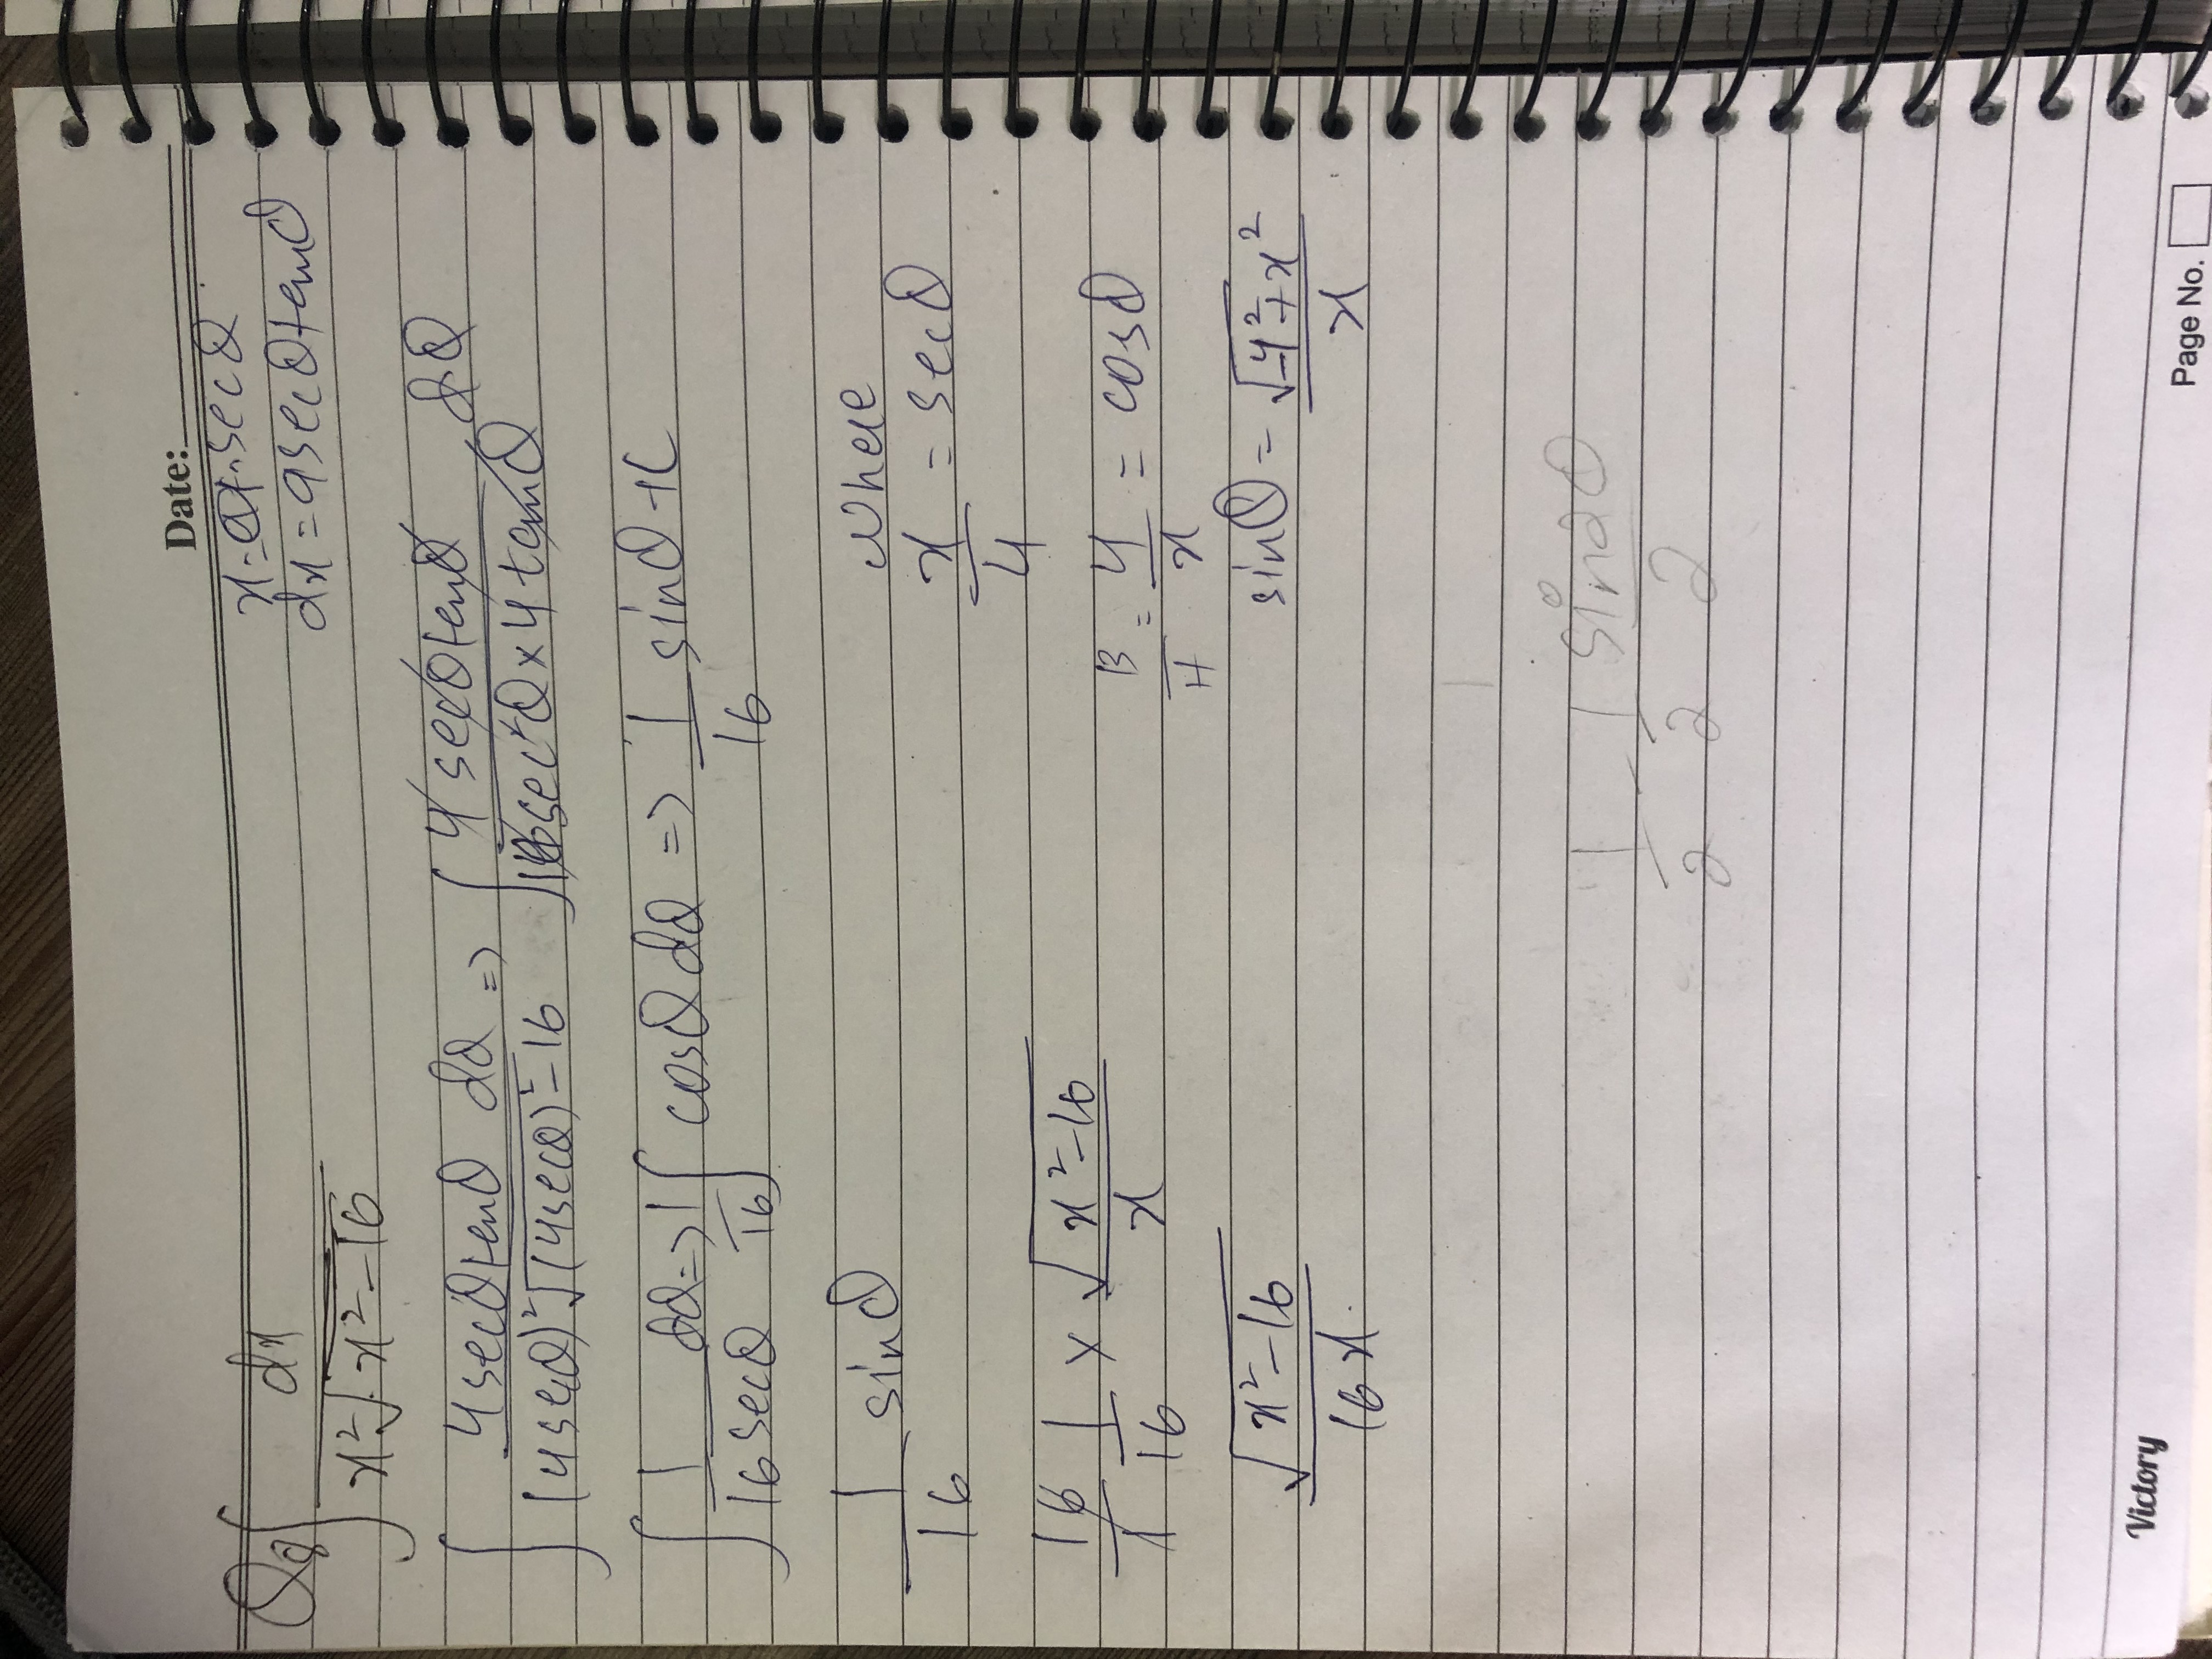 Date:
x = a secθ
dx = a secθ tanθ
Q8 ∫ dx / x²√x²-16
∫ 4 secθ tanθ dθ / (4 secθ)²√(4 secθ)²-16 => ∫ 4 secθ tanθ / 16 sec²θ × 4 tanθ dθ
∫ 1 / 16 secθ dθ => 1/16 ∫ cosθ dθ => 1/16 sinθ + C
1/16 sinθ
where
x/4 = secθ
16/1 1/16 × √x²-16 / x
B/H = 4/x = cosθ
√x²-16 / 16x
sinθ = √-4²+x² / x
1/2 - 1/2 sin2θ/2
Victory
Page No.